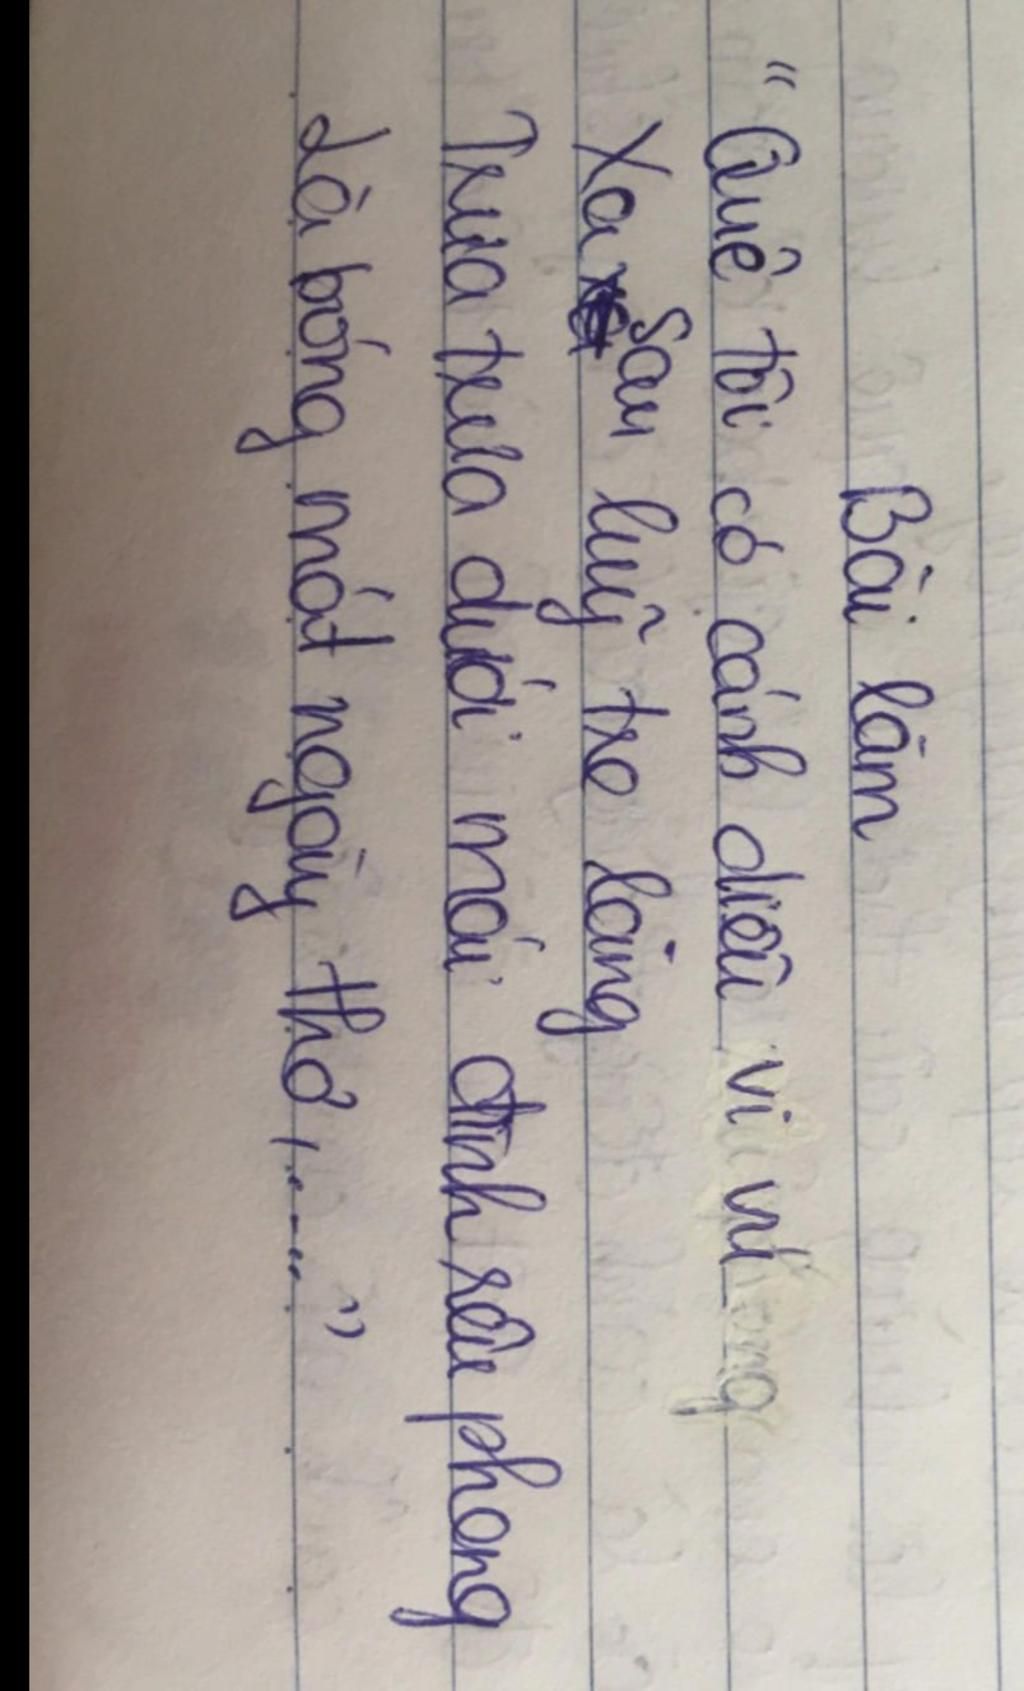 Bài làm
"Quê tôi có cánh diều vi vu
Xa sau luỹ tre làng
Trưa trưa dưới mái đình rêu phong
Là bóng mát ngày thơ,....."